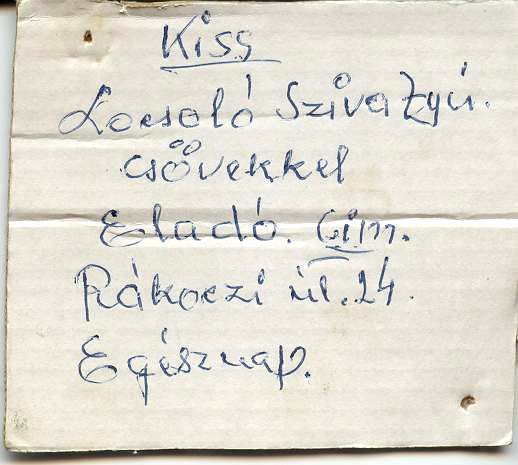 Kiss
Locsoló Szivattyú.
csövekkel
Eladó. Cím.
Rákoczi út. 24.
Egésznap.